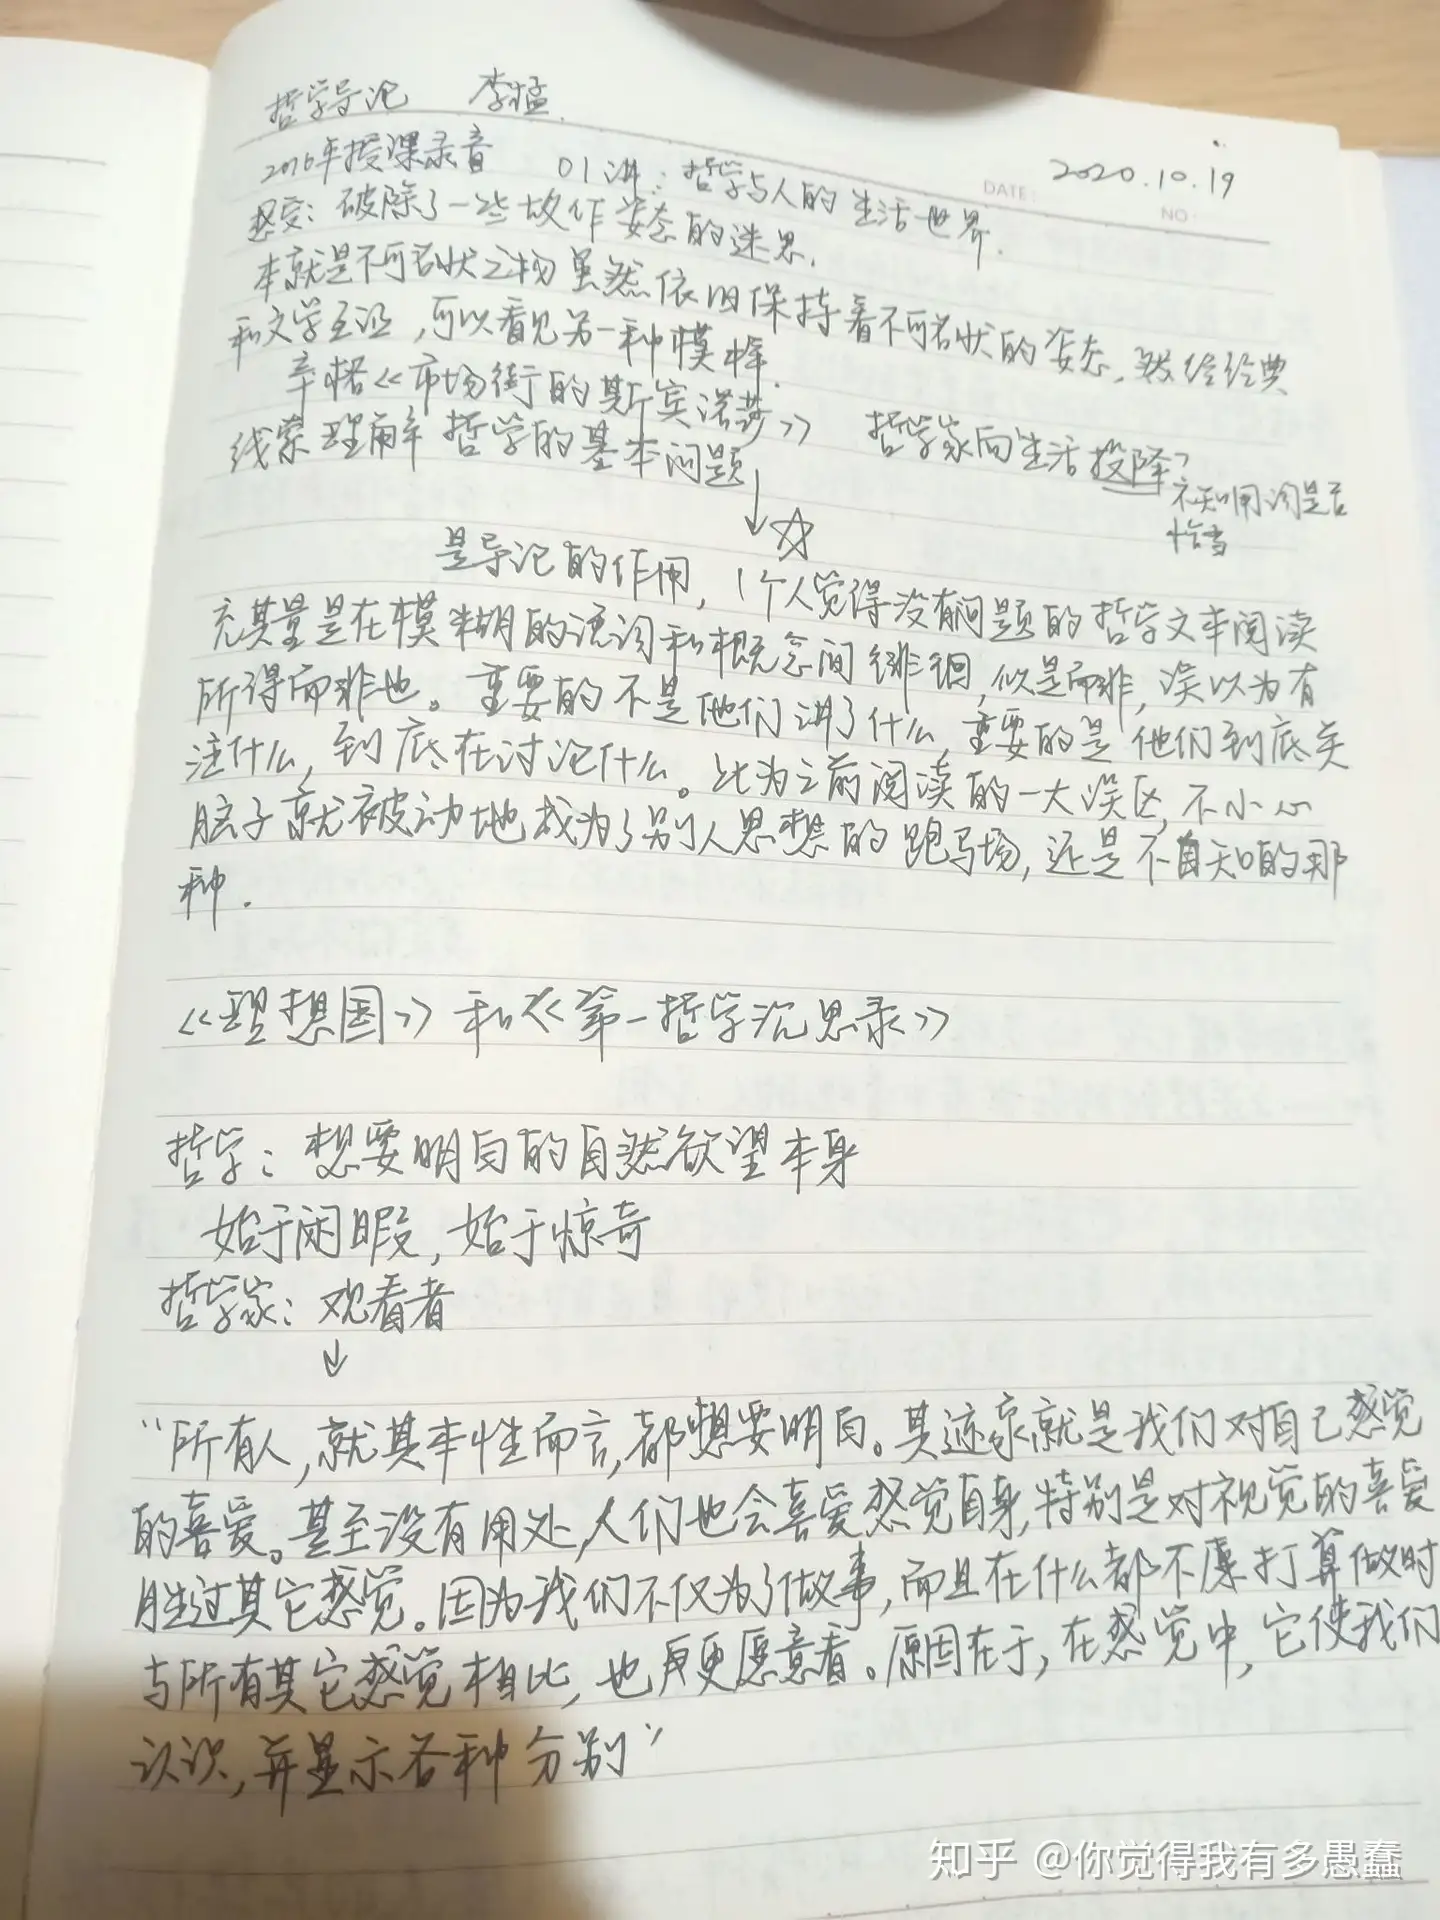 哲学导论 李猛.
2016年授课录音 01讲：哲学与人的生活世界.
DATE: 2020.10.19
NO:
感受：破除了一些故作姿态的迷思.
本就是不可名状之物虽然依旧保持着不可名状的姿态,
和文学至证,可以看见另一种模样.
辛格《市场街的斯宾诺莎》 哲学家向生活投降?
不知用词是否
恰当
线索理解哲学的基本问题
↓☆
是导论的作用,1个人觉得没有问题的哲学文本阅读
充其量是在模糊的语词和概念间徘徊,似是而非,误以为有
所得而非也。重要的不是他们讲了什么,重要的是他们到底关
注什么,到底在讨论什么。此为之前阅读的一大误区,不小心
脑子就被动地成为了别人思想的跑马场,还是不自知的那
种.
《理想国》和《第一哲学沉思录》
哲学：想要明白的自然欲望本身
始于闲暇,始于惊奇
哲学家：观看者
↓
“所有人,就其本性而言,都想要明白。其迹象就是我们对自己感觉
的喜爱。甚至没有用处,人们也会喜爱感觉自身,特别是对视觉的喜爱
胜过其它感觉。因为我们不仅为了做事,而且在什么都不打算做时
与所有其它感觉相比,也更愿意看。原因在于,在感觉中,它使我们
认识,并显示各种分别”
知乎 @你觉得我有多愚蠢